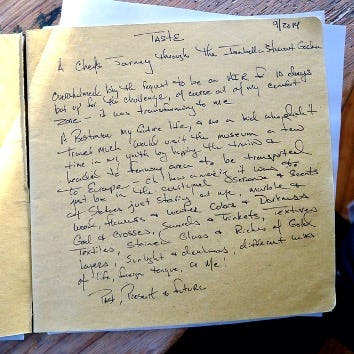 TASTE
9/2019
A Chefs Journey through the Isabella Stewart Gardner
Overwhelmed by the request to be an AIR for 10 days
but up for the challenge, of course out of my comfort
zone - it was transforming to me
A Bostonian my entire life, & as a kid who didn't
travel much would visit the museum a few
time in my youth by hoping the train &
to Fenway area to be transported
to Europe - oh how amazing it was to
just be in the courtyard & Seeds
of Statues just staring at me, marble &
wood, flowers & water Colors & Darkness
God & Crosses, Swords & Trinkets, Textures
Textiles, Stained Glass & Riches of Gold
layers, Sunlight & dreaminess, different walks
of life, foreign tongue, & Me!
Past, Present & future